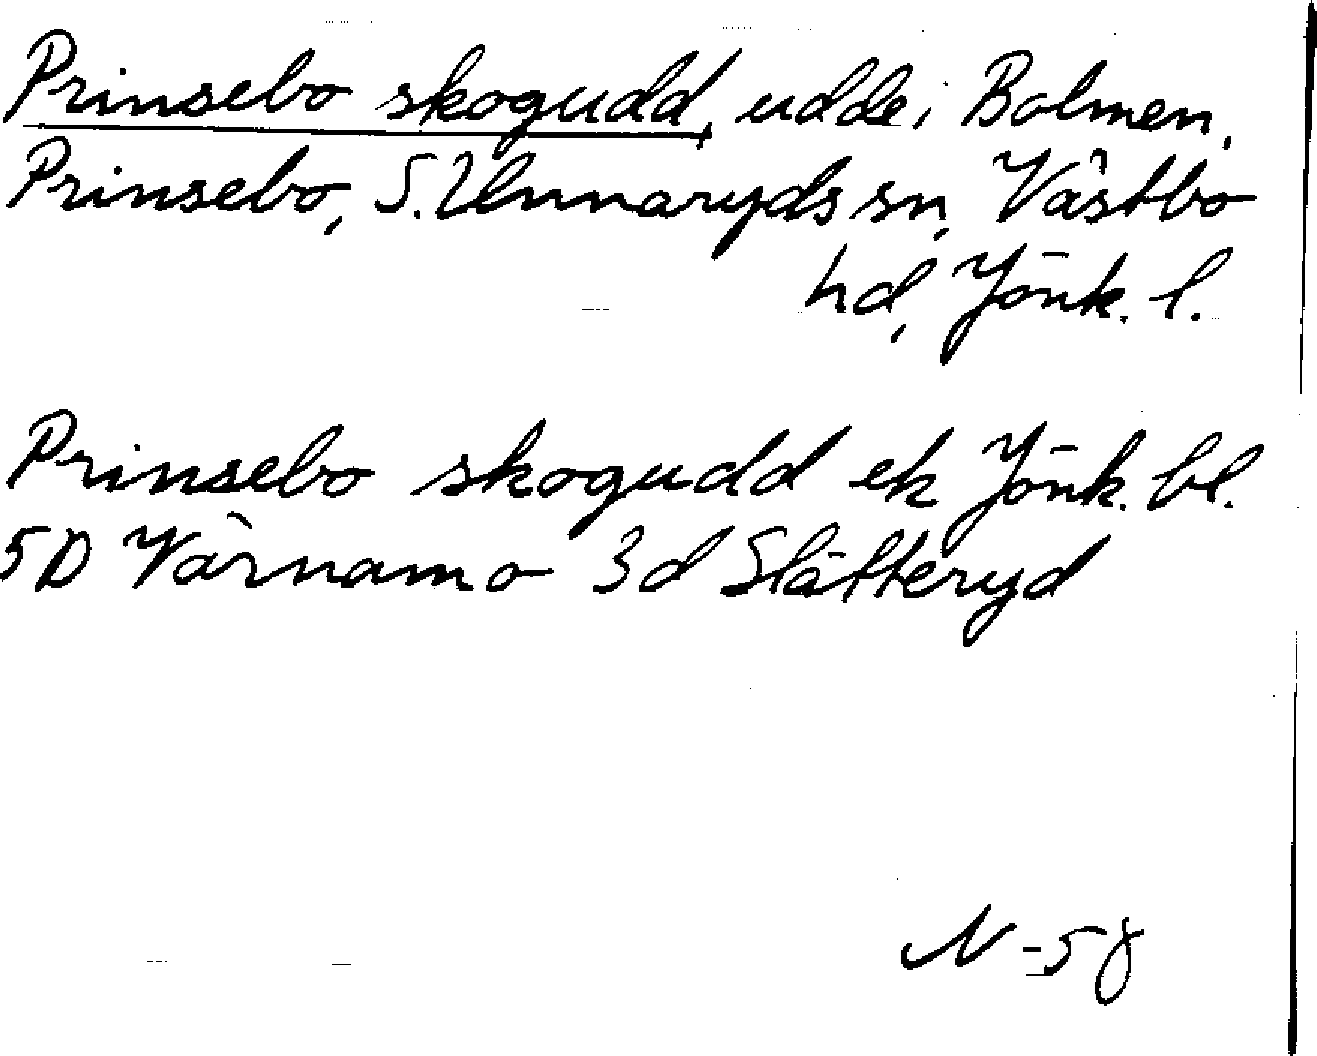 Prinsebo skogudd, udde i Bolmen,
Prinsebo, S. Unnaryds sn, Västbo
hd, Jönk. l.
Prinsebo skogudd ek Jönk. bl.
5D Värnamo 3d Slätteryd
N -58